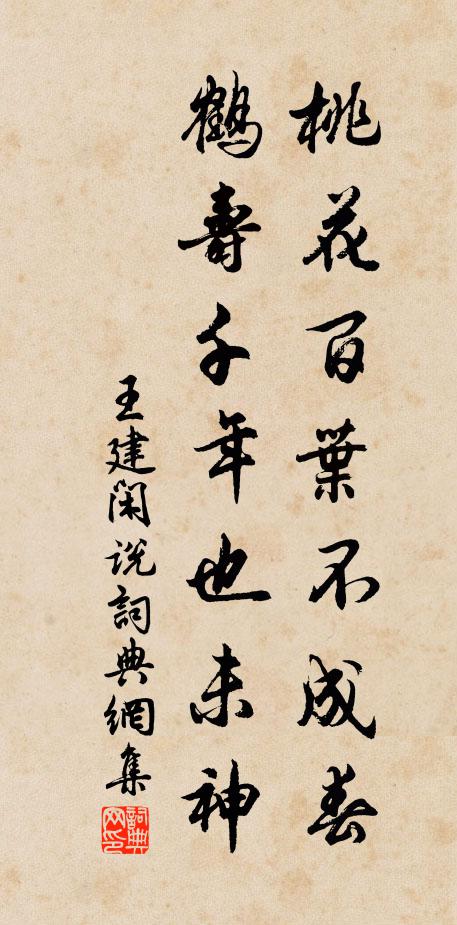 桃花百葉不成春
鶴壽千年也未神
王建閑説詞典網集
詞典
网印